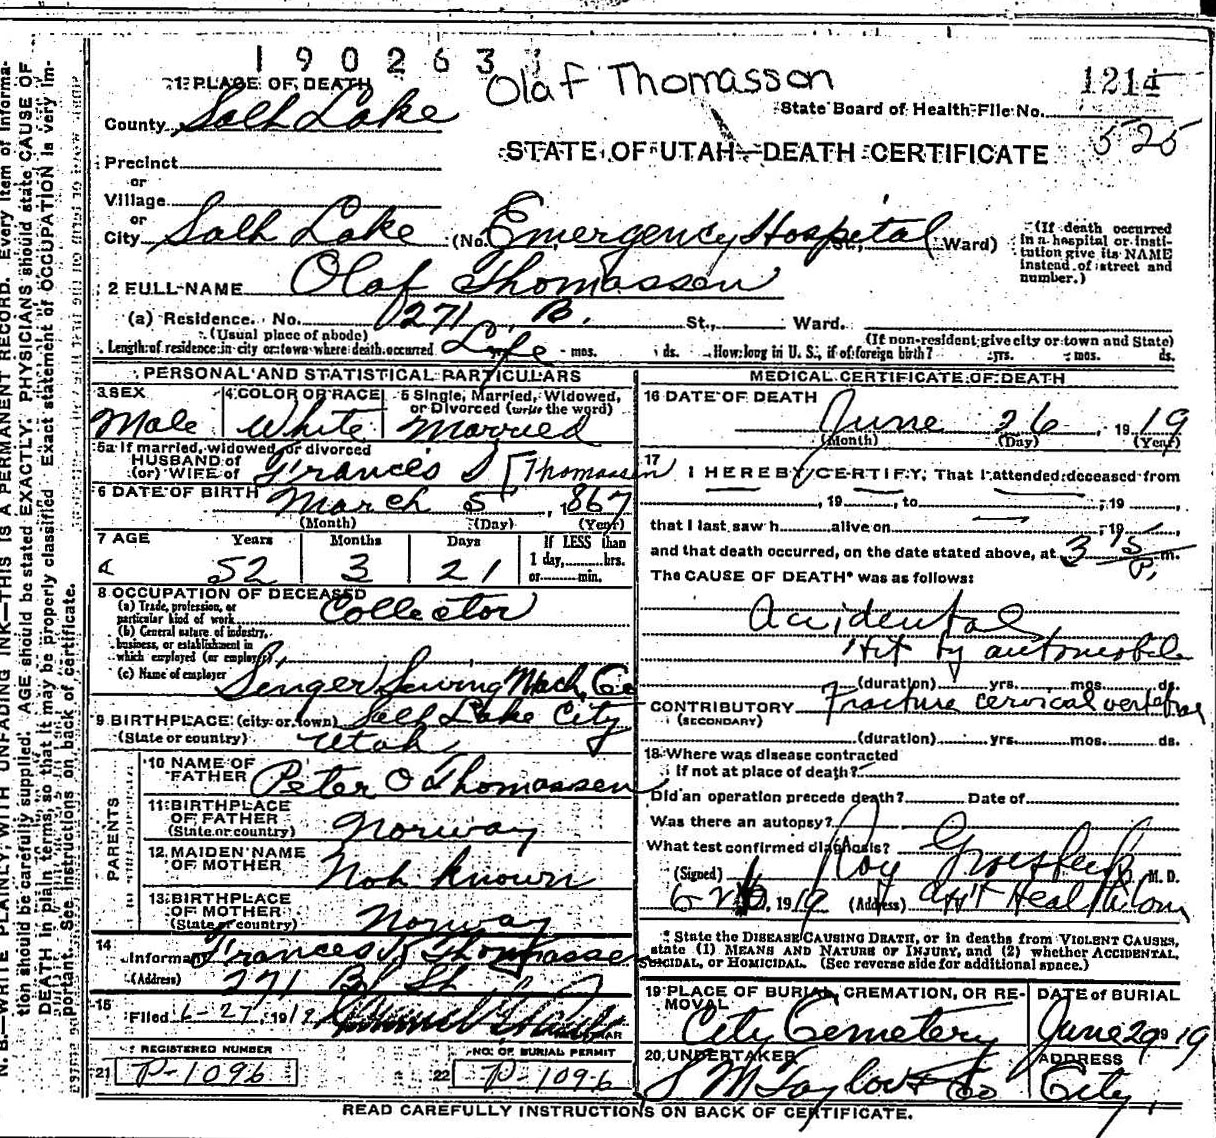 190263
Olaf Thomasson
1214
State Board of Health File No.
525
STATE OF UTAH—DEATH CERTIFICATE
1 PLACE OF DEATH
County Salt Lake
Precinct
or
Village
or
City Salt Lake (No. Emergency Hospital St., Ward)
(If death occurred in a hospital or institution give its NAME instead of street and number.)
2 FULL NAME Olaf Thomassen
(a) Residence. No. 271 B. St., Ward.
(Usual place of abode) (If non-resident give city or town and State)
Length of residence in city or town where death occurred Life mos. ds. How long in U. S., if of foreign birth? yrs. mos. ds.
PERSONAL AND STATISTICAL PARTICULARS
3 SEX Male
4 COLOR OR RACE White
5 Single, Married, Widowed, or Divorced (write the word) Married
5a If married, widowed or divorced
HUSBAND of
(or) WIFE of Frances S Thomassen
6 DATE OF BIRTH March 5, 1867
(Month) (Day) (Year)
7 AGE Years Months Days If LESS than
52 3 21 1 day, hrs.
or min.
8 OCCUPATION OF DECEASED
(a) Trade, profession, or particular kind of work Collector
(b) General nature of industry, business, or establishment in which employed (or employer)
(c) Name of employer Singer Sewing Mach. Co
9 BIRTHPLACE (city or town) Salt Lake City
(State or country) Utah
PARENTS
10 NAME OF FATHER Peter O Thomassen
11 BIRTHPLACE OF FATHER (State or country) Norway
12 MAIDEN NAME OF MOTHER Not known
13 BIRTHPLACE OF MOTHER (State or country) Norway
14 Informant Frances Thomassen
(Address) 271 B St
15 Filed 6-27, 191 REGISTRAR
REGISTERED NUMBER
21 P-1096
NO. OF BURIAL PERMIT
22 P-1096
MEDICAL CERTIFICATE OF DEATH
16 DATE OF DEATH
June 26, 1919
(Month) (Day) (Year)
17 I HEREBY CERTIFY, That I attended deceased from
, 19 , to , 19 ,
that I last saw h alive on , 19 ,
and that death occurred, on the date stated above, at 3 15 P. m.
The CAUSE OF DEATH* was as follows:
Accidental
Hit by automobile
(duration) yrs. mos. ds.
CONTRIBUTORY Fracture cervical vertebrae
(SECONDARY)
(duration) yrs. mos. ds.
18 Where was disease contracted
if not at place of death?
Did an operation precede death? Date of
Was there an autopsy?
What test confirmed diagnosis?
(Signed) Roy Groesbeck M. D.
6-26, 1919 (Address) Ass't Health Com
* State the DISEASE CAUSING DEATH, or in deaths from VIOLENT CAUSES,
state (1) MEANS AND NATURE OF INJURY, and (2) whether ACCIDENTAL,
SUICIDAL, OR HOMICIDAL. (See reverse side for additional space.)
19 PLACE OF BURIAL, CREMATION, OR REMOVAL City Cemetery
DATE of BURIAL June 29 1919
20 UNDERTAKER S M Taylor & Co
ADDRESS City
READ CAREFULLY INSTRUCTIONS ON BACK OF CERTIFICATE.
N. B.—WRITE PLAINLY, WITH UNFADING INK—THIS IS A PERMANENT RECORD. Every item of informa-
tion should be carefully supplied. AGE should be stated EXACTLY. PHYSICIANS should state CAUSE OF
DEATH in plain terms, so that it may be properly classified. Exact statement of OCCUPATION is very im-
portant. See instructions on back of certificate.